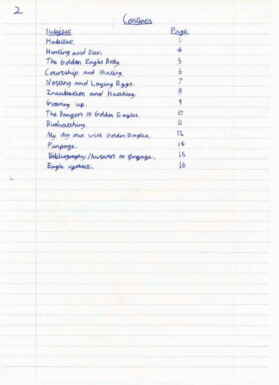 2
Contents
Subject Page
Habitat.
Hunting and Diet. 4
The Golden Eagle Body. 5
Courtship and Mating. 6
Nesting and Laying Eggs. 7
Incubation and Hatching. 8
Growing up. 9
The Dangers to Golden Eagles. 10
Birdwatching. 11
My day out with Golden Eagles. 12
Funpage. 14
Bibliography/Answers to funpage. 15
Eagle 16